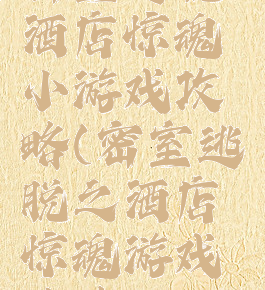 酒店惊魂
小游戏攻
略(密室逃
脱之酒店
惊魂游戏